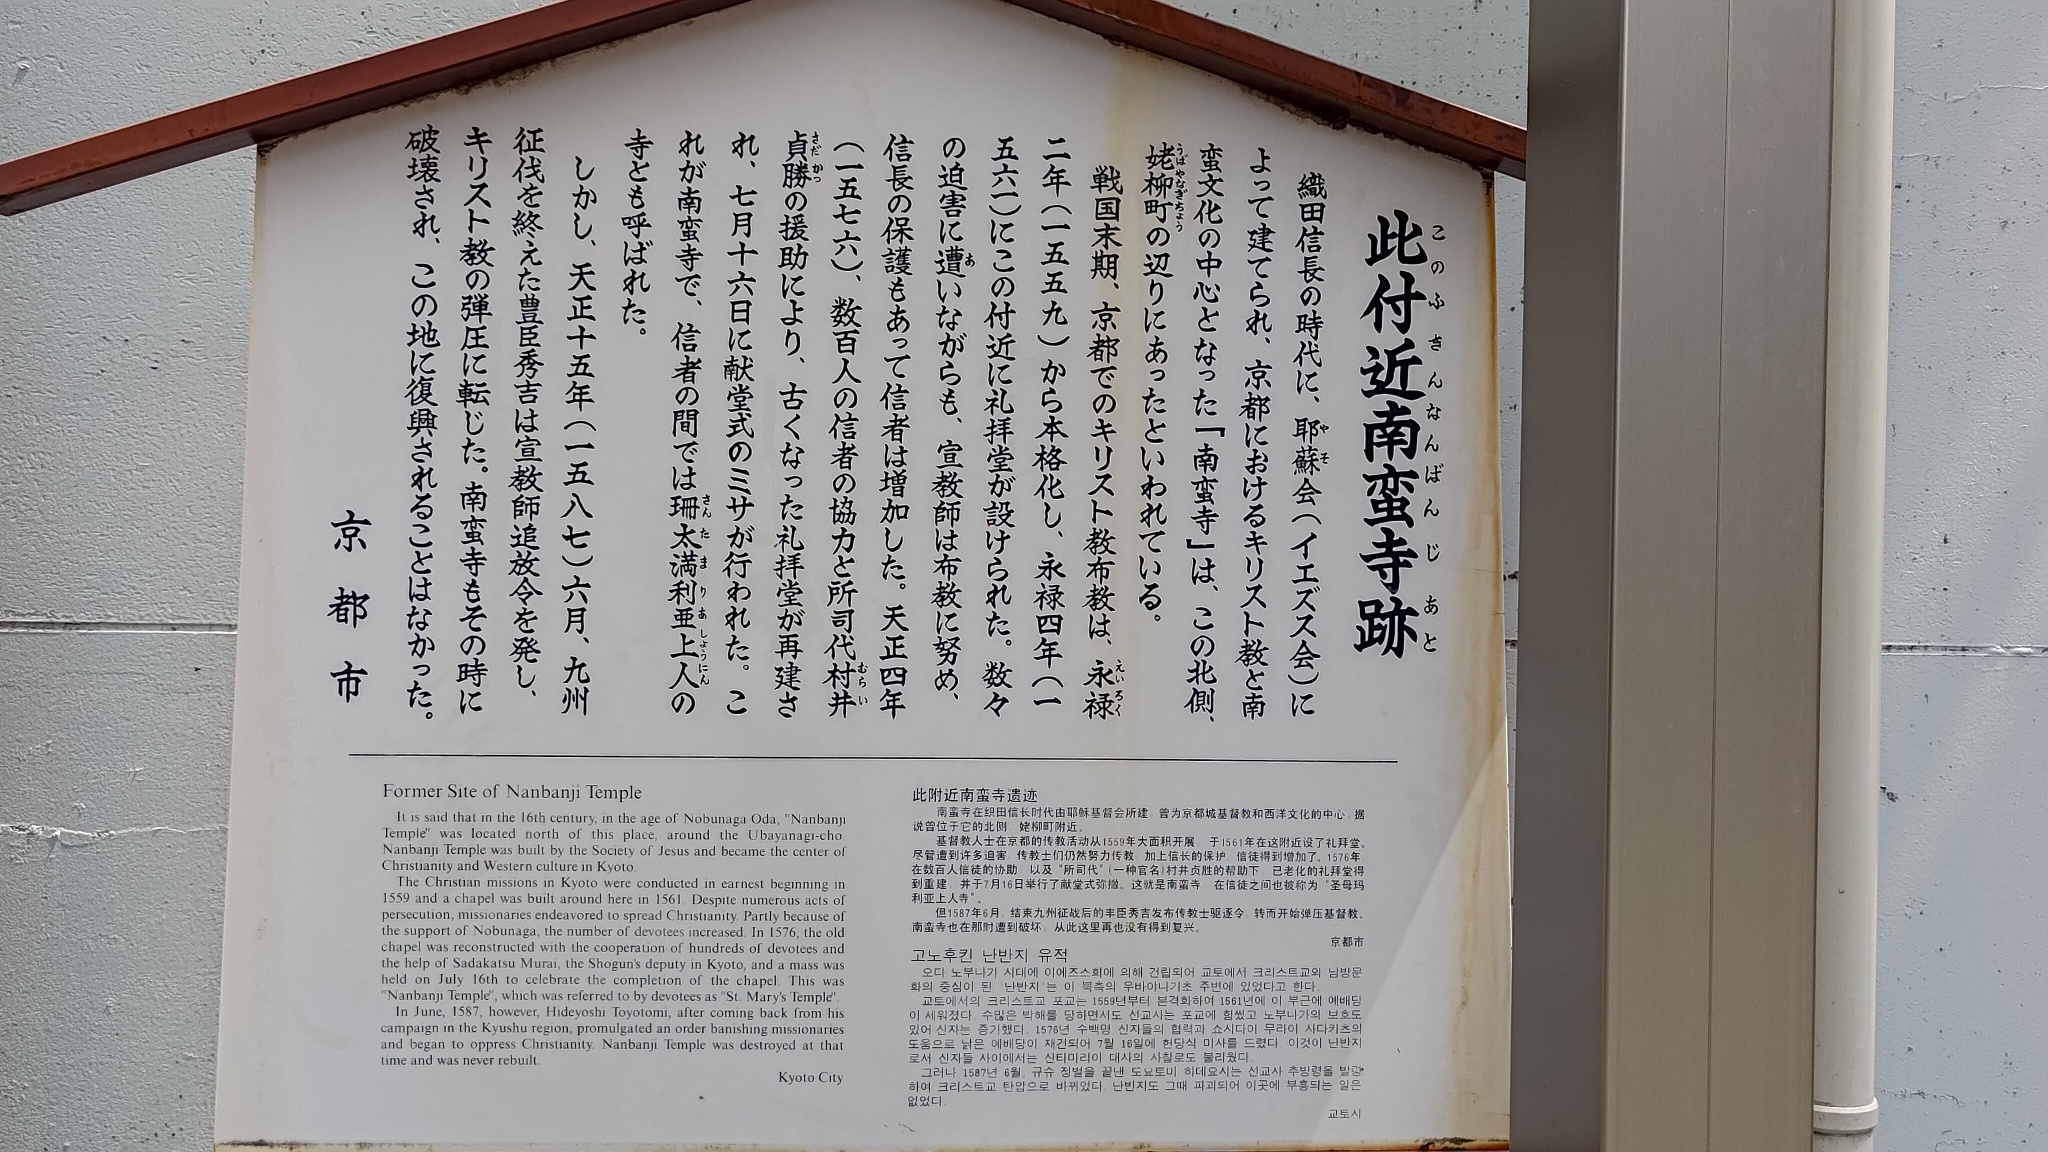 此付近南蛮寺跡
このふきんなんばんじあと
織田信長の時代に、耶蘇会(イエズス会)に
よって建てられ、京都におけるキリスト教と南
蛮文化の中心となった「南蛮寺」は、この北側、
姥柳町の辺りにあったといわれている。
戦国末期、京都でのキリスト教布教は、永禄
二年(一五五九)から本格化し、永禄四年(一
五六一)にこの付近に礼拝堂が設けられた。数々
の迫害に遭いながらも、宣教師は布教に努め、
信長の保護もあって信者は増加した。天正四年
(一五七六)、数百人の信者の協力と所司代村井
貞勝の援助により、古くなった礼拝堂が再建さ
れ、七月十六日に献堂式のミサが行われた。こ
れが南蛮寺で、信者の間では珊太満利亜上人の
寺とも呼ばれた。
しかし、天正十五年(一五八七)六月、九州
征伐を終えた豊臣秀吉は宣教師追放令を発し、
キリスト教の弾圧に転じた。南蛮寺もその時に
破壊され、この地に復興されることはなかった。
京都市
Former Site of Nanbanji Temple
It is said that in the 16th century, in the age of Nobunaga Oda, "Nanbanji
Temple" was located north of this place, around the Ubayanagi-cho.
Nanbanji Temple was built by the Society of Jesus and became the center of
Christianity and Western culture in Kyoto.
The Christian missions in Kyoto were conducted in earnest beginning in
1559 and a chapel was built around here in 1561. Despite numerous acts of
persecution, missionaries endeavored to spread Christianity. Partly because of
the support of Nobunaga, the number of devotees increased. In 1576, the old
chapel was reconstructed with the cooperation of hundreds of devotees and
the help of Sadakatsu Murai, the Shogun's deputy in Kyoto, and a mass was
held on July 16th to celebrate the completion of the chapel. This was
"Nanbanji Temple", which was referred to by devotees as "St. Mary's Temple".
In June, 1587, however, Hideyoshi Toyotomi, after coming back from his
campaign in the Kyushu region, promulgated an order banishing missionaries
and began to oppress Christianity. Nanbanji Temple was destroyed at that
time and was never rebuilt.
Kyoto City
此附近南蛮寺遗迹
南蛮寺在织田信长时代由耶稣基督会所建，曾为京都城基督教和西洋文化的中心，据
说曾位于它的北侧，姥柳町附近。
基督教人士在京都的传教活动从1559年大面积开展，于1561年在这附近设了礼拜堂。
尽管遭到许多迫害，传教士们仍然努力传教，加上信长的保护，信徒得到增加了。1576年
在数百人信徒的协助，以及“所司代”(一种官名)村井贞胜的帮助下，已老化的礼拜堂得
到重建，并于7月16日举行了献堂式弥撒。这就是南蛮寺，在信徒之间也被称为“圣母玛
利亚上人寺”。
但1587年6月，结束九州征战后的丰臣秀吉发布传教士驱逐令，转而开始弹压基督教。
南蛮寺也在那时遭到破坏，从此这里再也没有得到复兴。
京都市
고노후킨 난반지 유적
오다 노부나가 시대에 이에즈스회에 의해 건립되어 교토에서 크리스트교와 남방문
화의 중심이 된 '난반지'는 이 북측의 우바야나기초 주변에 있었다고 한다.
교토에서의 크리스트교 포교는 1559년부터 본격화하여 1561년에 이 부근에 예배당
이 세워졌다. 수많은 박해를 당하면서도 선교사는 포교에 힘썼고 노부나가의 보호도
있어 신자는 증가했다. 1576년 수백명 신자들의 협력과 쇼시다이 무라이 사다카츠의
도움으로 낡은 예배당이 재건되어 7월 16일에 헌당식 미사를 드렸다. 이것이 난반지
로서 신자들 사이에서는 산타마리아 대사의 사찰로도 불리웠다.
그러나 1587년 6월, 규슈 징벌을 끝낸 도요토미 히데요시는 선교사 추방령을 발령
하여 크리스트교 탄압으로 바뀌었다. 난반지도 그때 파괴되어 이곳에 부흥되는 일은
없었다.
교토시